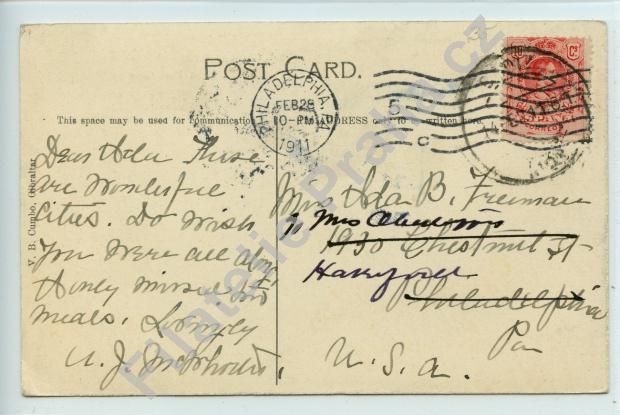 POST CARD.
PHILADELPHIA, PA.
FEB 28
10-PM
1911
5
C
This space may be used for communication
ADDRESS only to be written here.
V. B. Cumbo, Gibraltar
Dear Ada These
are Wonderful
Cities. Do Wish
You Were all along
Honey missed two
meals. Lovingly
Mrs Ada B. Freeman
Mrs
1930 Chestnut St
Haverford
Philadelphia
Pa
U.S.A.
ESPAÑA
CORREOS
Filatelie Praha.cz